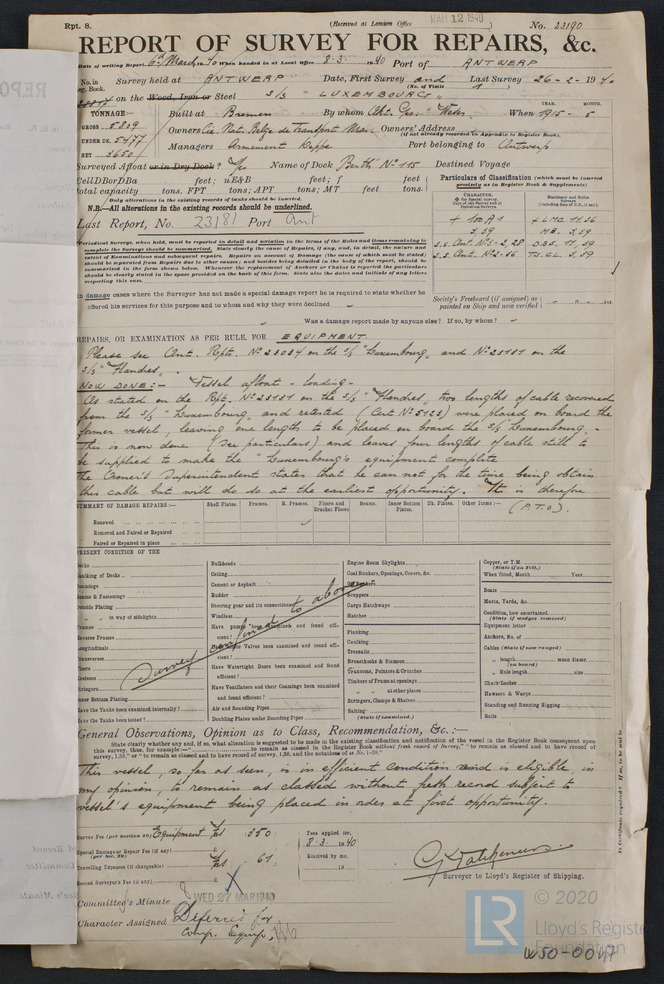 Rpt. 8.
(Received at London Office MAR 12 1940)
No. 23190
REPORT OF SURVEY FOR REPAIRS, &c.
Date of writing Report 6th March 1940 When handed in at Local Office 8.3.1940 Port of ANTWERP
No. in Survey held at ANTWERP Date, First Survey and Last Survey 26-2-1940
Reg. Book. (No. of Visits 1)
on the Wood, Iron or Steel S/S "LUXEMBOURG"
TONNAGE:— Built at Bremen By whom Akt. Ges. "Weser" When 1915-5
YEAR. MONTH.
GROSS 5809
UNDER DK. 5477
NET 3650
Owners Cie. Nat. Belge de Transport Mar. Owners' Address
(if not already recorded in Appendix to Register Book).
Managers Armement Deppe Port belonging to Antwerp
Surveyed Afloat or in Dry Dock? Name of Dock Berth No. 115 Destined Voyage
Cell DBorDBa feet; uE&B feet; f feet
total capacity tons. FPT tons; APT tons; MT feet tons.
Only alterations in the existing records should be given in detail
N.B.—All alterations in the existing records should be underlined.
Last Report, No. 23181 Port Ant
Particulars of Classification (which must be inserted
precisely as in Register Book & Supplements)
+ 100 A1 + LMC 11,36
3,39 MB. 3,39
S.S. Ant. No. 2-2,28 DBS. 11,39
S.S. Ant. No. 2-36 TS.CL. 3,39
Periodical Surveys, when held, must be reported in detail and seriatim in the terms of the Rules and items remaining to
complete the Survey should be summarized. State clearly the cause of Repairs, if any, and, in detail, the nature and
extent of Examinations and subsequent repairs. Repairs on account of Damage (the cause of which must be stated)
should be separated from Repairs due to other causes; and besides being detailed in the body of the report, should be
summarized in the form shown below. Whenever the replacement of Anchors or Chains is reported the particulars
should be clearly stated in the space provided on the back of this form. State also the dates and initials of any letters
respecting this case.
In damage cases where the Surveyor has not made a special damage report he is required to state whether he
offered his services for this purpose and to whom and why they were declined
Society's Freeboard (if assigned) as
painted on Ship and now verified
Was a damage report made by anyone else? If so, by whom?
REPAIRS, OR EXAMINATION AS PER RULE, FOR EQUIPMENT
Please see Ant. Rpts. No. 23084 on the S/S "Luxembourg" and No. 23181 on the
S/S "Flandres".
NOW DONE:- Vessel afloat - loading -
As stated on the Rpt. No. 23181 on the S/S "Flandres", two lengths of cable received
from the S/S "Luxembourg" and retested (Cert No. 5123) were placed on board the
former vessel, leaving one lengths to be placed on board the S/S Luxembourg.
This is now done (see particulars) and leaves four lengths of cable still to
be supplied to make the "Luxembourg's" equipment complete
The Owner's Superintendent states that he can not for the time being obtain
this cable but will do so at the earliest opportunity. It is therefore
(P.T.O).
SUMMARY OF DAMAGE REPAIRS:— Shell Plates. Frames. R. Frames. Floors and Bracket Floors Beams. Inner Bottom Plating. Dk. Plates. Other Items:—
Renewed
Removed and Faired or Repaired
Faired or Repaired in place
PRESENT CONDITION OF THE
Decks
Caulking of Decks
Coamings
Beams & Fastenings
Outside Plating
" in way of sidelights
Frames
Reverse Frames
Longitudinals
Transverses
Floors
Keelsons
Stringers
Inner Bottom Plating
Have the Tanks been examined internally?
Have the Tanks been tested?
Bulkheads
Ceiling
Cement or Asphalt
Rudder
Steering gear and its connections
Windlass
Have pumps been examined and found efficient?
Have Valves been examined and found efficient?
Have Watertight Doors been examined and found efficient?
Have Ventilators and their Coamings been examined and found efficient?
Air and Sounding Pipes
Doubling Plates under Sounding Pipes
Engine Room Skylights
Coal Bunkers, Openings, Covers, &c.
Scuppers
Cargo Hatchways
Hatches
Planking
Caulking
Treenails
Breasthooks & Sternson
Transoms, Pointers & Crutches
Timbers of Frame at openings
" " at other places
Stringers, Clamps & Shelves
Salting
(State if examined.)
Copper, or Y.M.
(State if on Felt.)
When fitted, Month Year
Boats
Masts, Yards, &c.
Condition, how ascertained
(State if wedges removed)
Equipment letter
Anchors, No. of
Cables (State if now ranged)
" length mean diamr.
(on board)
" Rule length size
Chain Locker
Hawsers & Warps
Standing and Running Rigging
Sails
Survey confined to above
General Observations, Opinion as to Class, Recommendation, &c.:—
State clearly whether any and, if so, what alteration is suggested to be made in the existing classification and notification of the vessel in the Register Book consequent upon
This vessel, so far as seen, is in efficient condition and is eligible, in
my opinion, to remain as classed without fresh record subject to
vessel's equipment being placed in order at first opportunity.
Survey Fee (per Section 29) Equipment 350
Special Damage or Repair Fee (if any)
(per Sec. 29)
Travelling Expenses (chargeable) 67
Second Surveyor's Fee (if any)
Fees applied for,
8.3.1940
Received by me,
19
Surveyor to Lloyd's Register of Shipping.
Committee's Minute WED 27 MAR 1940
Character Assigned Deferred for
comp. Equip.
© 2020
LR
Lloyd's Register
Foundation
W50-0047